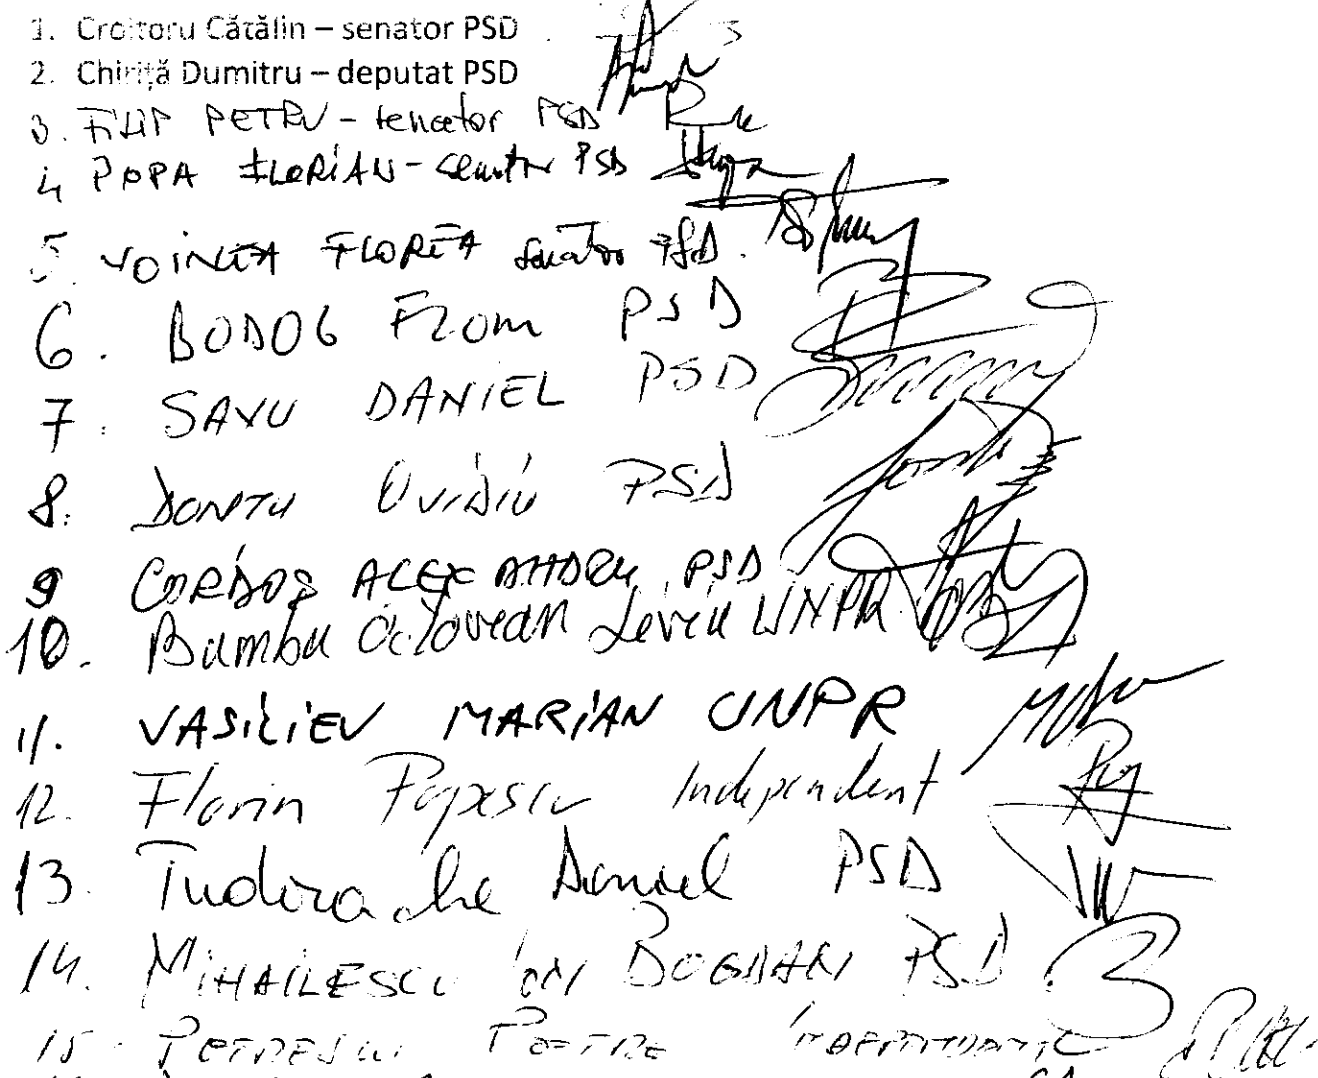 1. Croitoru Cătălin – senator PSD
2. Chiriță Dumitru – deputat PSD
3. FILIP PETRU - senator PSD
4 POPA FLORIAN - senator PSD
5. VOINEA FLOREA senator PSD.
6. BODOG Florian PSD
7. SAVU DANIEL PSD
8. DONTU Ovidiu PSD
9 CORDOȘ ALEXANDRU PSD
10. Bumbu Octavian Liviu UNPR
11. VASILIEV MARIAN UNPR
12. Florin Popescu Independent
13. Tudorache Daniel PSD
14. MIHAILESCU BOGDAN PSD
15. PETRESCU PETRE